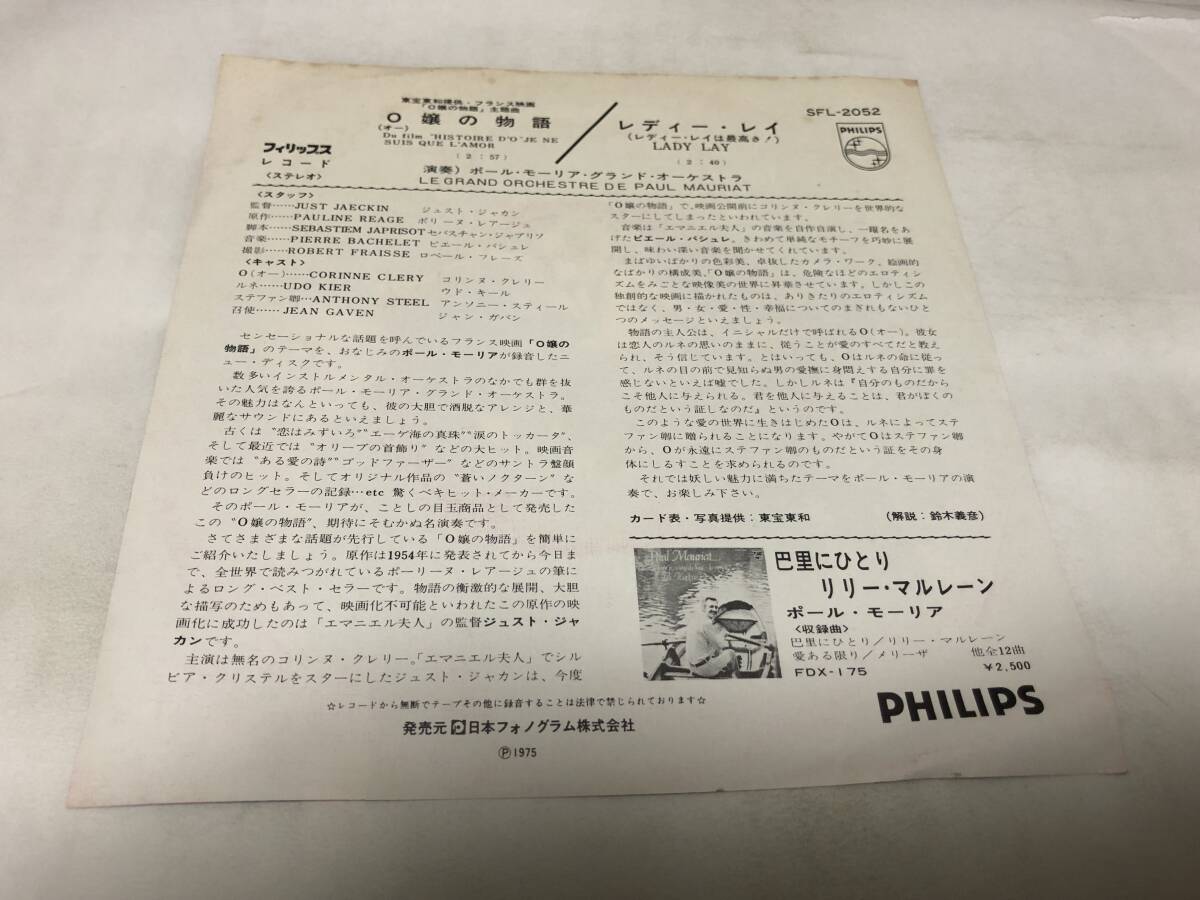 東宝東和提供・フランス映画
「O嬢の物語」主題曲
O嬢の物語
(オー)
Du film "HISTOIRE D'O" JE NE
SUIS QUE L'AMOR
(2:57)
レディー・レイ
(レディー・レイは最高さ!)
LADY LAY
(2:40)
SFL-2052
PHILIPS
フィリップス
レコード
<ステレオ>
演奏) ポール・モーリア・グランド・オーケストラ
LE GRAND ORCHESTRE DE PAUL MAURIAT
<スタッフ>
監督……JUST JAECKIN ジュスト・ジャカン
原作……PAULINE REAGE ポリーヌ・レアージュ
脚本……SEBASTIEM JAPRISOT セバスチャン・ジャプリゾ
音楽……PIERRE BACHELET ピエール・バシュレ
撮影……ROBERT FRAISSE ロベール・フレーズ
<キャスト>
O(オー)……CORINNE CLERY コリンヌ・クレリー
ルネ……UDO KIER ウド・キール
ステファン卿…ANTHONY STEEL アンソニー・スティール
召使……JEAN GAVEN ジャン・ガバン
センセーショナルな話題を呼んでいるフランス映画「O嬢の
物語」のテーマを、おなじみのポール・モーリアが録音したニ
ュー・ディスクです。
数多いインストルメンタル・オーケストラのなかでも群を抜
いた人気を誇るポール・モーリア・グランド・オーケストラ。
その魅力はなんといっても、彼の大胆で洒脱なアレンジと、華
麗なサウンドにあるといえましょう。
古くは"恋はみずいろ""エーゲ海の真珠""涙のトッカータ"、
そして最近では"オリーブの首飾り"などの大ヒット。映画音
楽では"ある愛の詩""ゴッドファーザー"などのサントラ盤顔
負けのヒット。そしてオリジナル作品の"蒼いノクターン"な
どのロングセラーの記録…etc 驚くべきヒット・メーカーです。
そのポール・モーリアが、ことしの目玉商品として発売した
この"O嬢の物語"、期待にそむかぬ名演奏です。
さてさまざまな話題が先行している「O嬢の物語」を簡単に
ご紹介いたしましょう。原作は1954年に発表されてから今日ま
で、全世界で読みつがれているポーリーヌ・レアージュの筆に
よるロング・ベスト・セラーです。物語の衝激的な展開、大胆
な描写のためもあって、映画化不可能といわれたこの原作の映
画化に成功したのは「エマニエル夫人」の監督ジュスト・ジャ
カンです。
主演は無名のコリンヌ・クレリー。「エマニエル夫人」でシル
ビア・クリステルをスターにしたジュスト・ジャカンは、今度
「O嬢の物語」で、映画公開前にコリンヌ・クレリーを世界的な
スターにしてしまったといわれています。
音楽は「エマニエル夫人」の音楽を自作自演し、一躍名をあ
げたピエール・バシュレ。きわめて単純なモチーフを巧妙に展
開し、味わい深い音楽を聞かせてくれています。
まばゆいばかりの色彩美、卓抜したカメラ・ワーク、絵画的
なばかりの構成美、「O嬢の物語」は、危険なほどのエロティシ
ズムをみごとな映像美の世界に昇華させています。しかしこの
独創的な映画に描かれたものは、ありきたりのエロティシズム
ではなく、男・女・愛・性・幸福についてのまぎれもないひと
つのメッセージといえましょう。
物語の主人公は、イニシャルだけで呼ばれるO(オー)。彼女
は恋人のルネの思いのままに、従うことが愛のすべてだと教え
られ、そう信じています。とはいっても、Oはルネの命に従っ
て、ルネの目の前で見知らぬ男の愛撫に身悶えする自分に罪を
感じないといえば嘘でした。しかしルネは『自分のものだから
こそ他人に与えられる。君を他人に与えることは、君がぼくの
ものだという証しなのだ』というのです。
このような愛の世界に生きはじめたOは、ルネによってステ
ファン卿に贈られることになります。やがてOはステファン卿
から、Oが永遠にステファン卿のものだという証をその身
体にしるすことを求められるのです。
それでは妖しい魅力に満ちたテーマをポール・モーリアの演
奏で、お楽しみ下さい。
カード表・写真提供:東宝東和 (解説:鈴木義彦)
Paul Mauriat
巴里にひとり
リリー・マルレーン
ポール・モーリア
<収録曲>
巴里にひとり/リリー・マルレーン
愛ある限り/メリーザ 他全12曲
FDX-175 ¥2,500
☆レコードから無断でテープその他に録音することは法律で禁じられております☆
発売元 日本フォノグラム株式会社
Ⓟ1975
PHILIPS